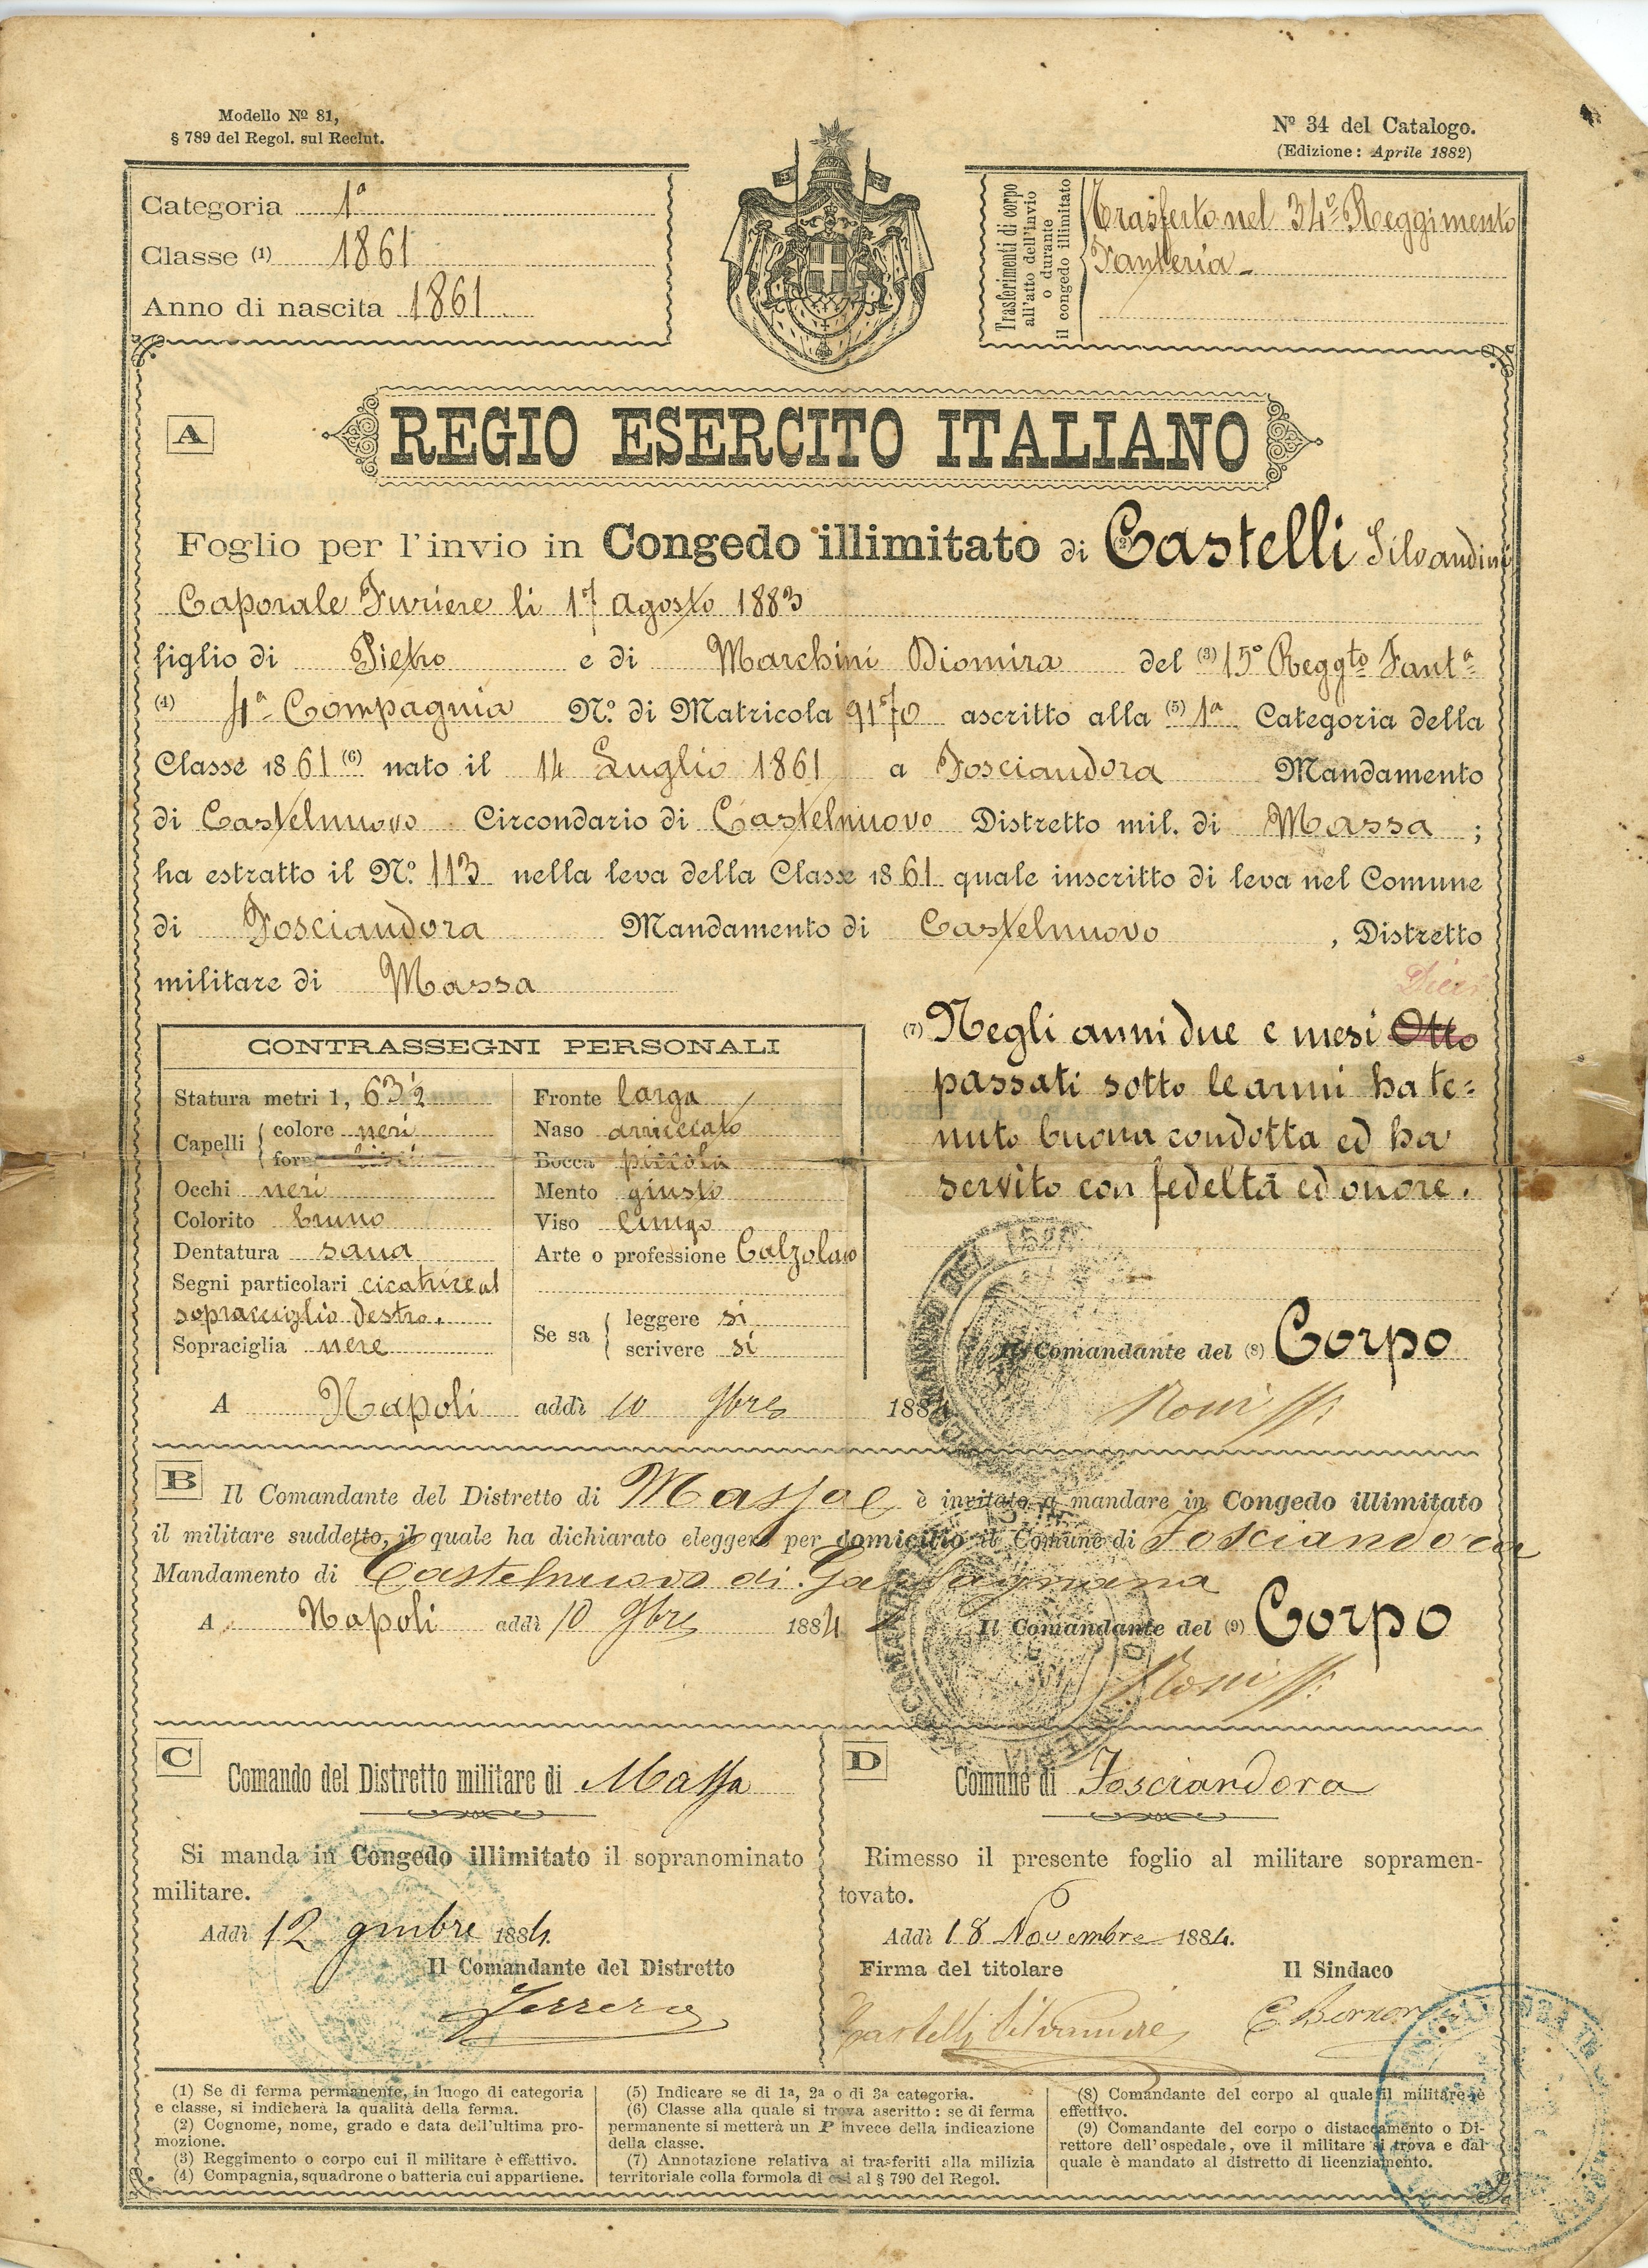 Modello Nº 81,
§ 789 del Regol. sul Reclut.
Nº 34 del Catalogo.
(Edizione: Aprile 1882)
Categoria 1ª
Classe (1) 1861
Anno di nascita 1861
Trasferimenti di corpo
all'atto dell'invio
o durante
il congedo illimitato
Trasferto nel 34º Reggimento
Fanteria
A
REGIO ESERCITO ITALIANO
Foglio per l'invio in Congedo illimitato di (2) Castelli
Caporale Furiere li 17 Agosto 1883
figlio di Pietro e di Marchini Diomira del (3) 15º Reggto Fantª
(4) 4ª Compagnia Nº. di Matricola 9170 ascritto alla (5) 1ª Categoria della
Classe 1861 (6) nato il 14 Luglio 1861 a Fosciandora Mandamento
di Castelnuovo Circondario di Castelnuovo Distretto mil. di Massa ;
ha estratto il Nº. 113 nella leva della Classe 1861 quale inscritto di leva nel Comune
di Fosciandora Mandamento di Castelnuovo , Distretto
militare di Massa
Dieci
(7) Negli anni due e mesi Otto
passati sotto le armi ha te=
nuto buona condotta ed ha
servito con fedeltà ed onore.
CONTRASSEGNI PERSONALI
Statura metri 1, 63½
Capelli colore neri
Occhi neri
Colorito bruno
Dentatura sana
Segni particolari cicatrice al
sopracciglio destro.
Sopraciglia nere
Fronte larga
Naso arricciato
Bocca piccola
Mento giusto
Viso lungo
Arte o professione Calzolaio
Se sa leggere si
scrivere si
Il Comandante del (8) Corpo
A Napoli addì 10 9bre 1884
B
Il Comandante del Distretto di Massa è invitato a mandare in Congedo illimitato
il militare suddetto, il quale ha dichiarato eleggere per domicilio il Comune di Fosciandora
Mandamento di Castelnuovo di Garfagnana
A Napoli addì 10 9bre 1884
Il Comandante del (9) Corpo
C
Comando del Distretto militare di Massa
Si manda in Congedo illimitato il sopranominato
militare.
Addì 12 9mbre 1884.
Il Comandante del Distretto
Ferrero
D
Comune di Fosciandora
Rimesso il presente foglio al militare sopramen-
tovato.
Addì 18 Novembre 1884.
Firma del titolare
Il Sindaco
(1) Se di ferma permanente, in luogo di categoria
e classe, si indicherà la qualità della ferma.
(2) Cognome, nome, grado e data dell'ultima pro-
mozione.
(3) Reggimento o corpo cui il militare è effettivo.
(4) Compagnia, squadrone o batteria cui appartiene.
(5) Indicare se di 1ª, 2ª o di 3ª categoria.
(6) Classe alla quale si trova ascritto: se di ferma
permanente si metterà un P invece della indicazione
della classe.
(7) Annotazione relativa ai trasferiti alla milizia
territoriale colla formola di cui al § 790 del Regol.
(8) Comandante del corpo al quale il militare è
effettivo.
(9) Comandante del corpo o distaccamento o Di-
rettore dell'ospedale, ove il militare si trova e dal
quale è mandato al distretto di licenziamento.